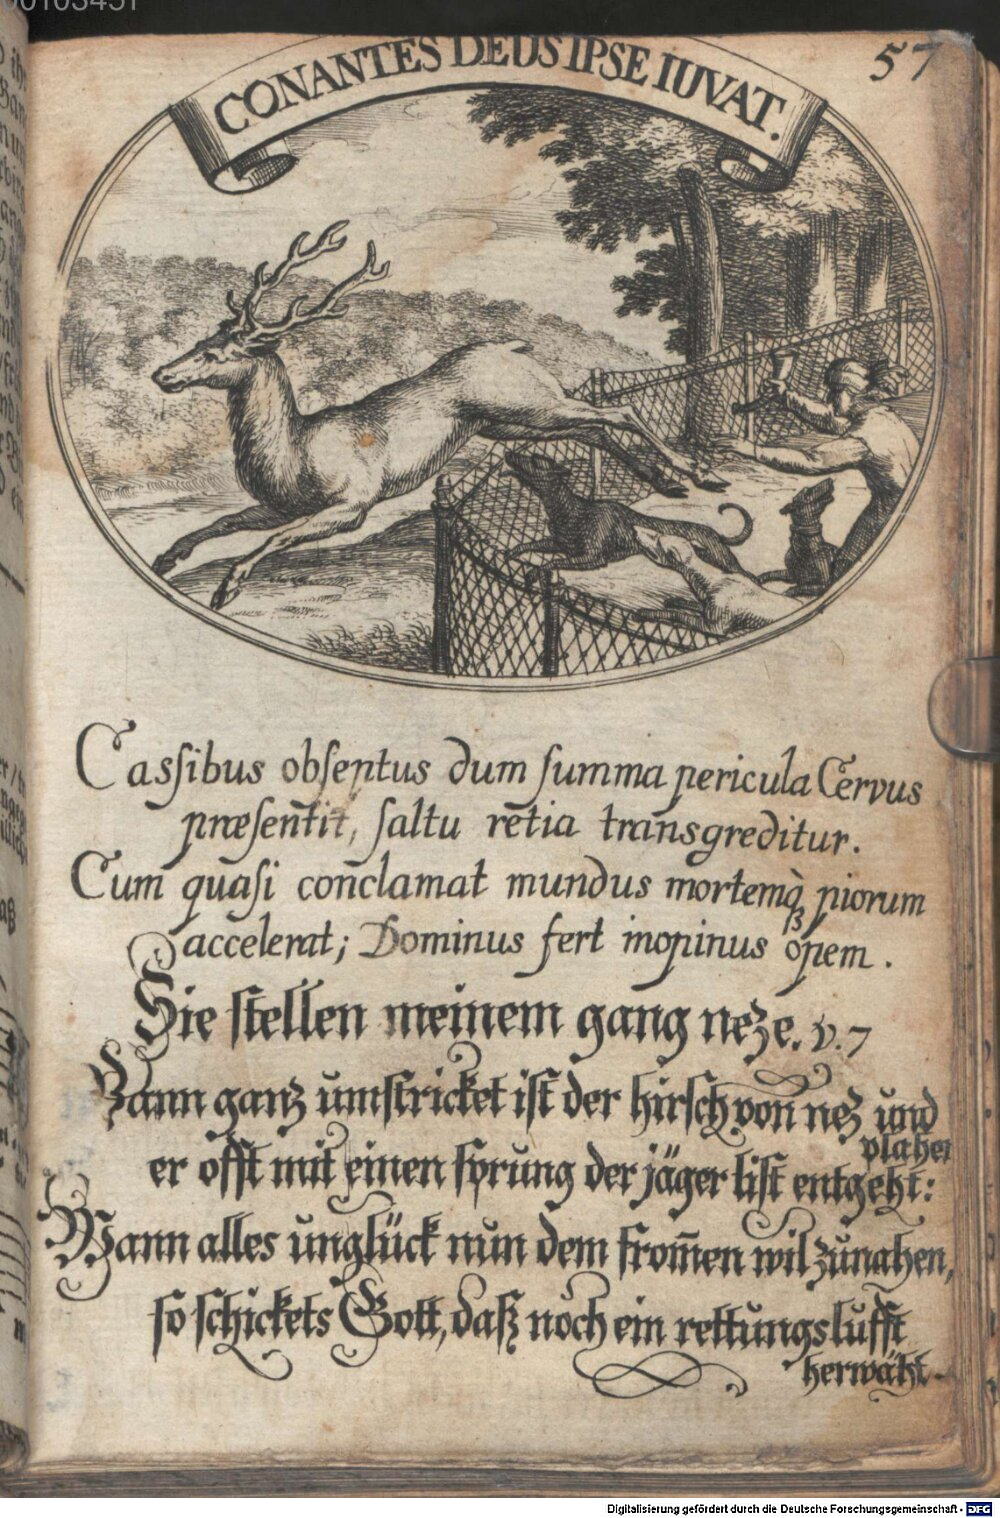 57
CONANTES DEUS IPSE IUVAT.
Cassibus obseptus dum summa pericula Cervus
præsentit, saltu retia transgreditur.
Cum quasi conclamat mundus mortemq̃ piorum
accelerat; Dominus fert inopinus opem.
Sie stellen meinem gang neze. v. 7
Wann ganz umstricket ist der hirsch von nez und
plahen
er offt mit einen sprung der jäger list entgeht:
Wann alles unglück nun dem from̃en wil zunahen,
so schickets Gott, daß noch ein rettungslufft
herwäht.
Digitalisierung gefördert durch die Deutsche Forschungsgemeinschaft - DFG